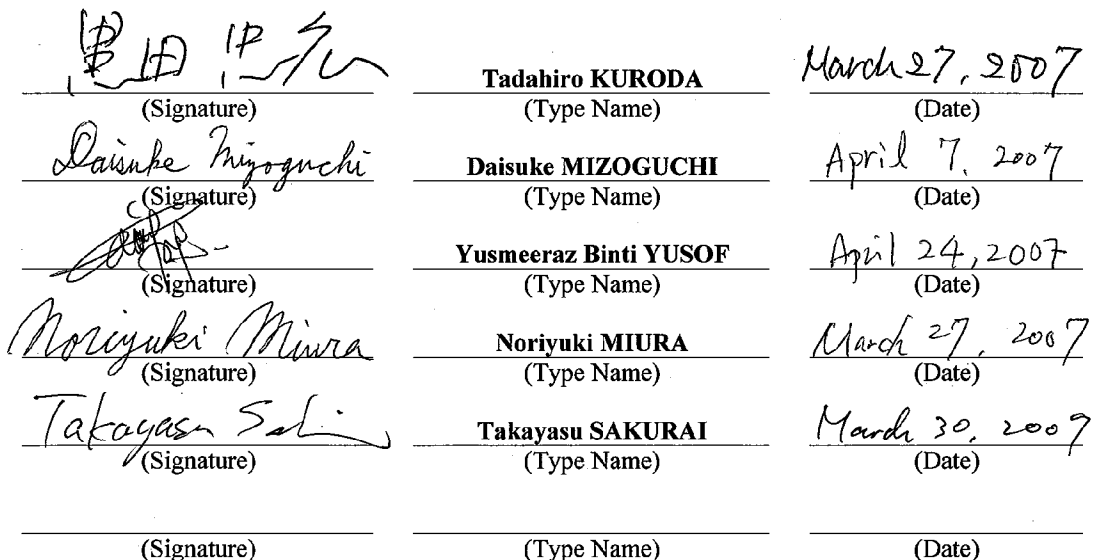 黒田忠広 Tadahiro KURODA March 27, 2007
(Signature) (Type Name) (Date)
Daisuke Mizoguchi Daisuke MIZOGUCHI April 7, 2007
(Signature) (Type Name) (Date)
Yusmeeraz Binti YUSOF April 24, 2007
(Signature) (Type Name) (Date)
Noriyuki Miura Noriyuki MIURA March 27, 2007
(Signature) (Type Name) (Date)
Takayasu Takayasu SAKURAI March 30, 2007
(Signature) (Type Name) (Date)
(Signature) (Type Name) (Date)